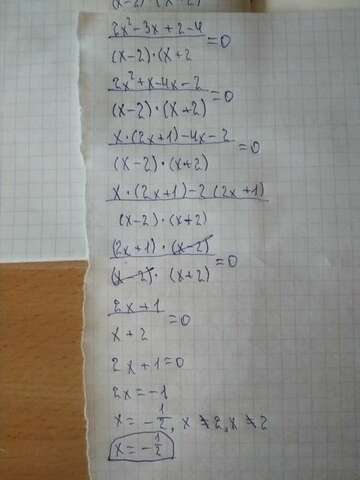 (x-2) (x-2)
2x²-3x+2-4
(x-2)·(x+2 =0
2x²+x-4x-2
(x-2)·(x+2) =0
x·(2x+1)-4x-2
(x-2)·(x+2) =0
x·(2x+1)-2(2x+1)
(x-2)·(x+2)
(2x+1)·(x-2)
(x-2)·(x+2) =0
2x+1
x+2 =0
2x+1=0
2x=-1
x=-1/2, x≠2, x≠2
x=-1/2